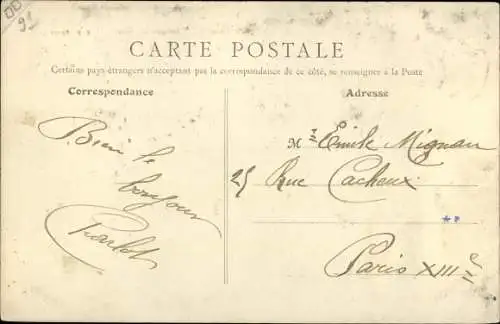 91
CARTE POSTALE
Certains pays étrangers n'acceptant pas la correspondance de ce côté, se renseigner à la Poste
Correspondance
Adresse
Bien le
bonjour
Mr Emile Mignan
25 Rue Cacheux
Paris XIIIe